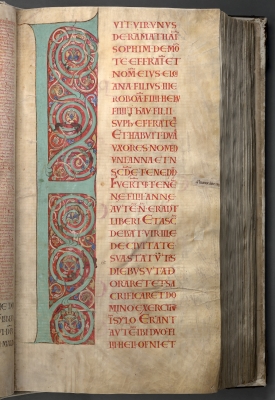 UIT UIR UNUS
DE RAMATHAI
SOPHIM DE MO
TE EFFRAI ET
NOM EIUS ELC
ANA FILIUS IHE
ROBOA FILII
FILII FILII
SUPH EFFRATE
ET HABUIT DUA
UXORES NOMEN
UNI ANNA ET N
SCDE FENENNA
FUERT FENEN
NE FILII ANNE
AUTEN ERANT
LIBERI ET ASCE
DEBAT UIR ILLE
DE CIUITATE
SUA STATUTIS
DIEBUS UT AD
ORARET ET SA
CRIFICARET DO
MINO EXERCITU
I SYLO ERANT
AUTE IBI DUO FI
LII HELI OFNI ET